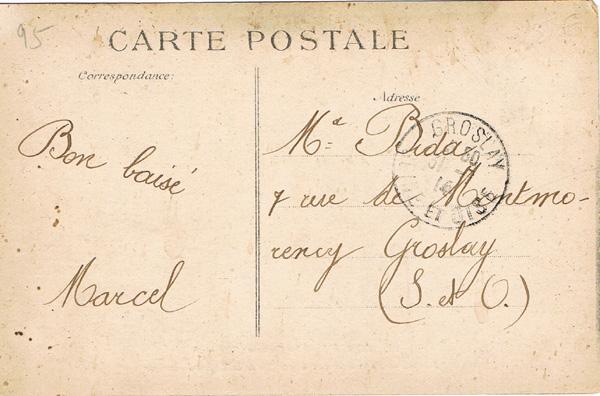 95
CARTE POSTALE
Correspondance:
Adresse
Bon baisé
Marcel
Md Bida
7 rue de Montmo-
rency Groslay
(S. et O.)
GROSLAY
ET OISE